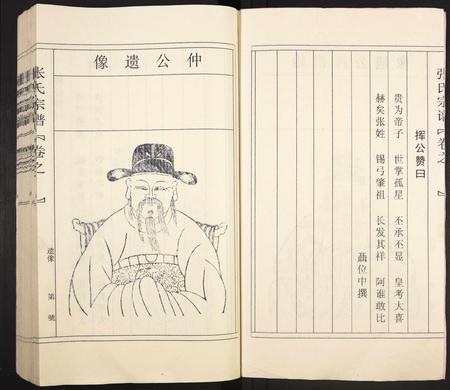 张氏宗谱『卷之 』
挥公赞曰
贵为帝子 世掌孤星 不承不显 皇考大喜
赫矣张姓 锡弓肇祖 长发其样 阿谁敢比
聶位中撰
仲公遗像
张氏宗谱『卷之 』
遗像 第 號